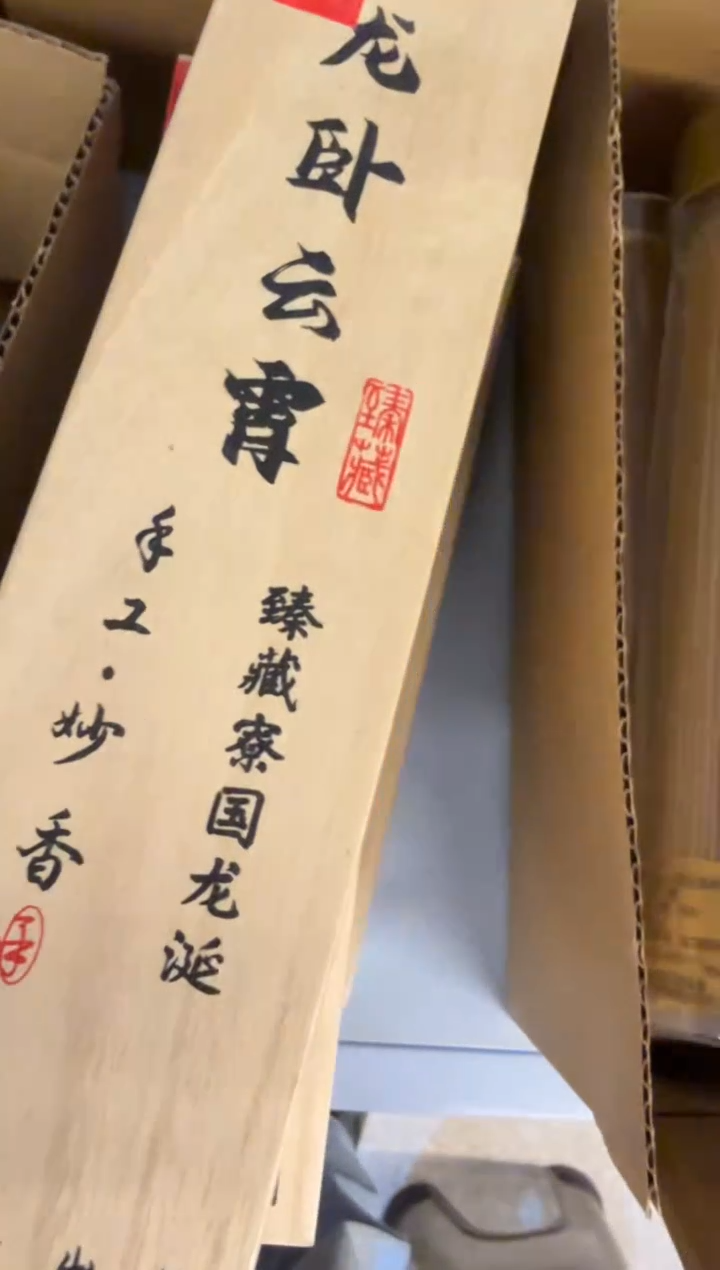 龙卧云霄
臻藏
臻藏寮国龙涎
手工·妙香